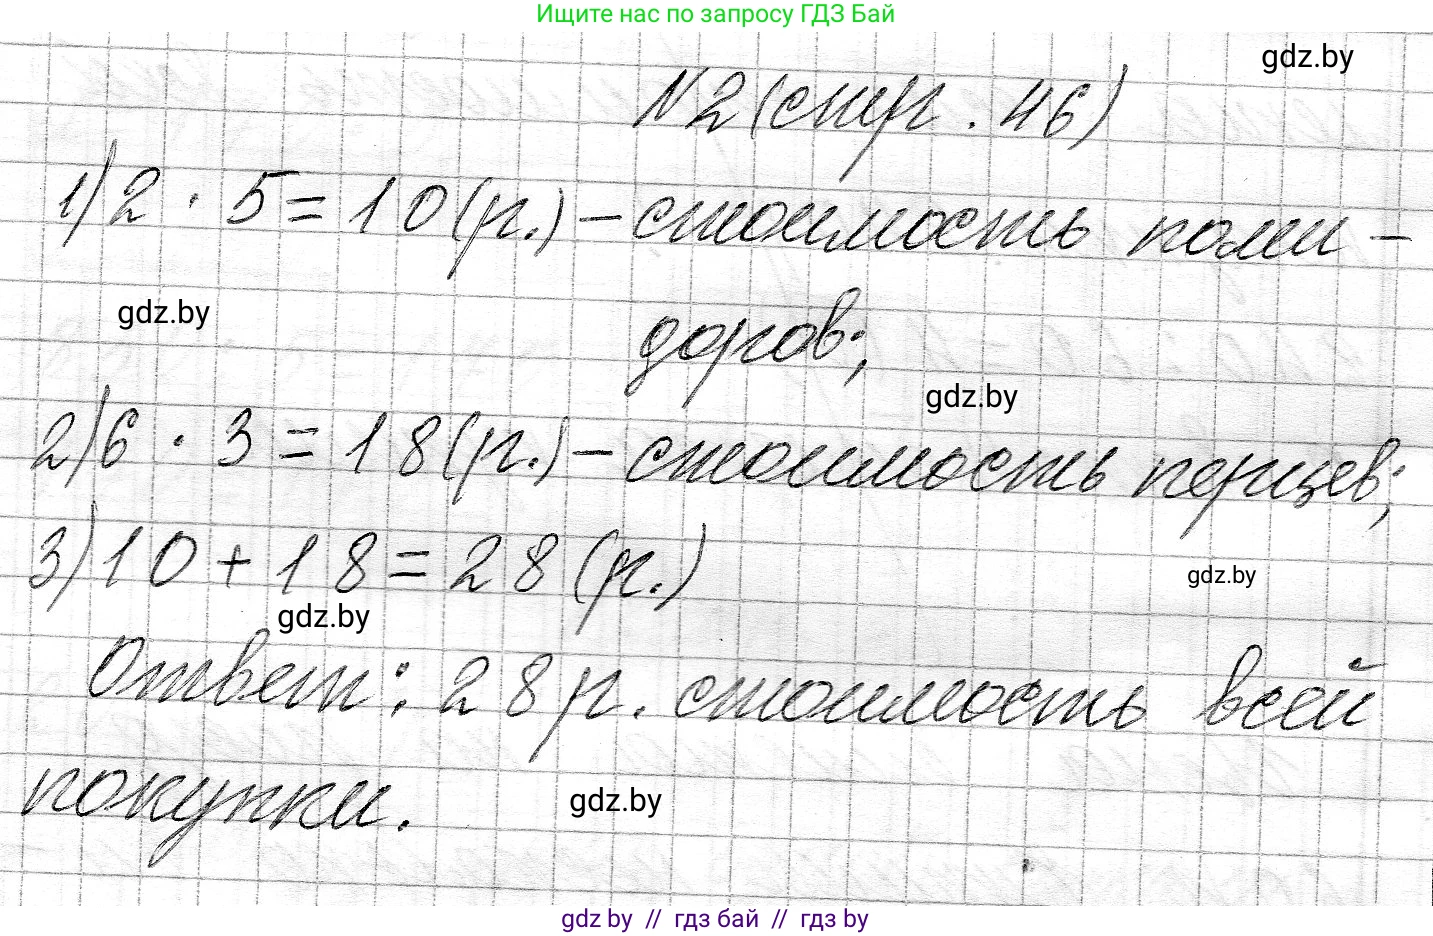 Ищите нас по запросу ГДЗ Бай
gdz.by
№2 (стр. 46)
1) 2 · 5 = 10 (р.) – стоимость поми-
gdz.by
доров;
gdz.by
2) 6 · 3 = 18 (р.) – стоимость перцев;
3) 10 + 18 = 28 (р.)
gdz.by
gdz.by
Ответ: 28 р. стоимость всей
покупки.
gdz.by
gdz.by // гдз бай // гдз by